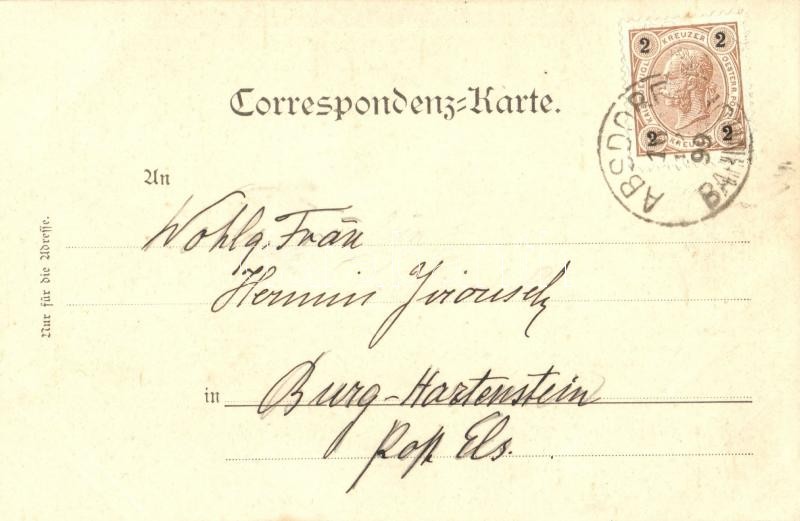 Correspondenz-Karte.
2 KREUZER 2
2 KREUZER 2
ABSDORF
BAHNHOF
99
An
Wohlg. Frau
Hermin Jirousek
in Burg-Hartenstein
Post Els.
Nur für die Adresse.